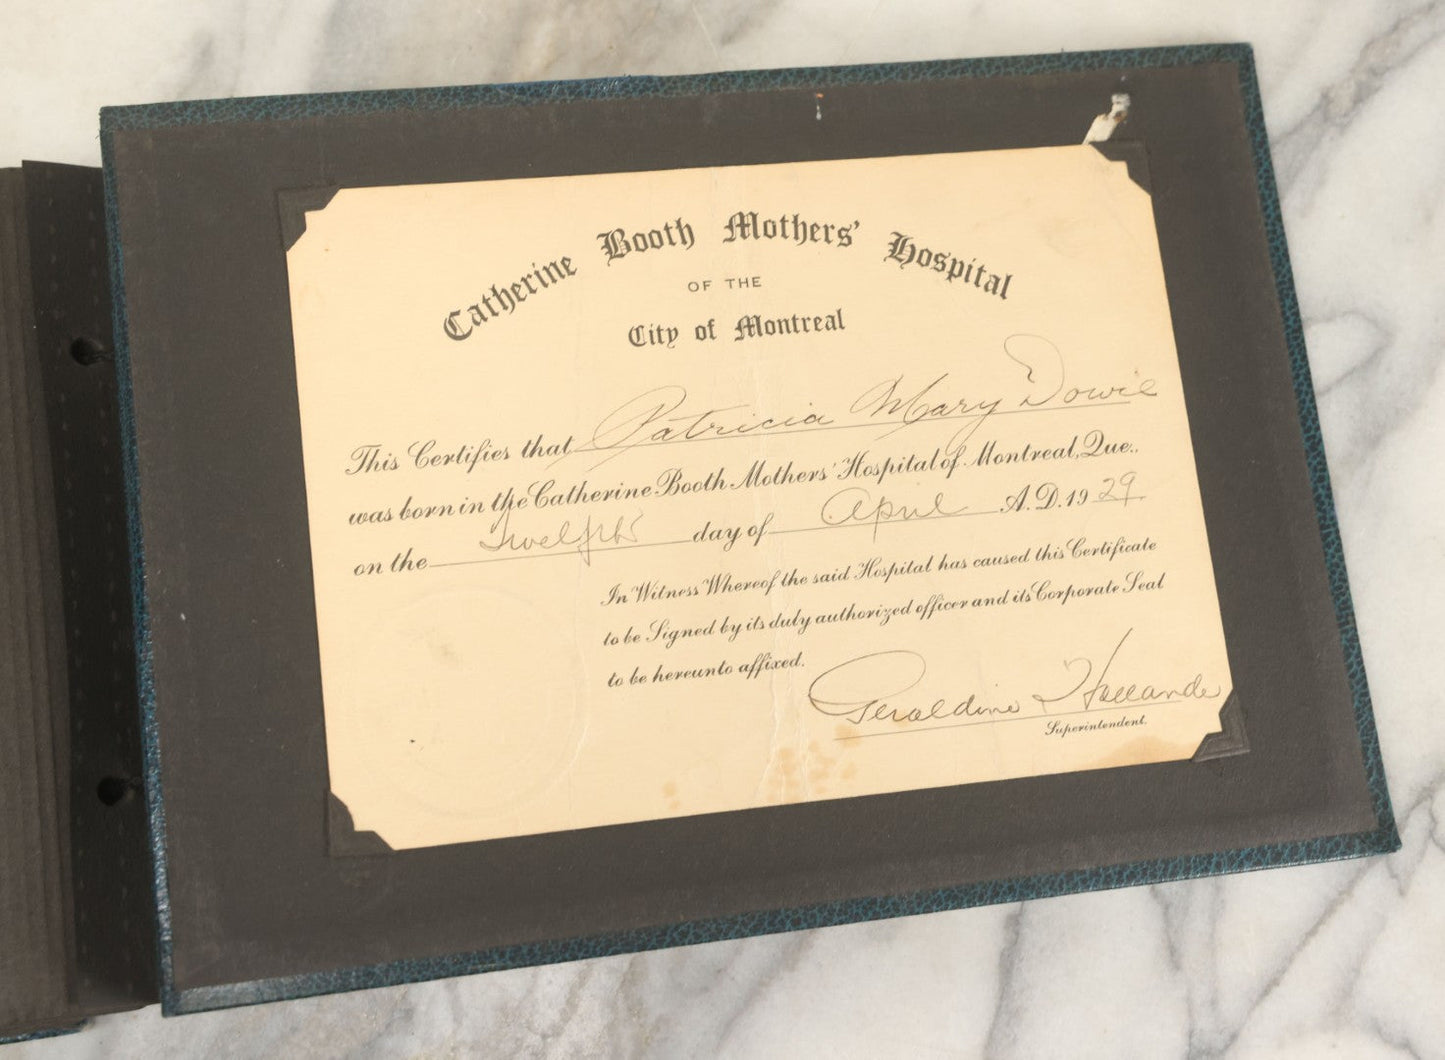 Catherine Booth Mothers' Hospital
OF THE
City of Montreal
This Certifies that Patricia Mary Dowie
was born in the Catherine Booth Mothers' Hospital of Montreal, Que.,
on the Twelfth day of April A.D. 1929
In Witness Whereof the said Hospital has caused this Certificate
to be Signed by its duly authorized officer and its Corporate Seal
to be hereunto affixed.
Geraldine Hollande
Superintendent.